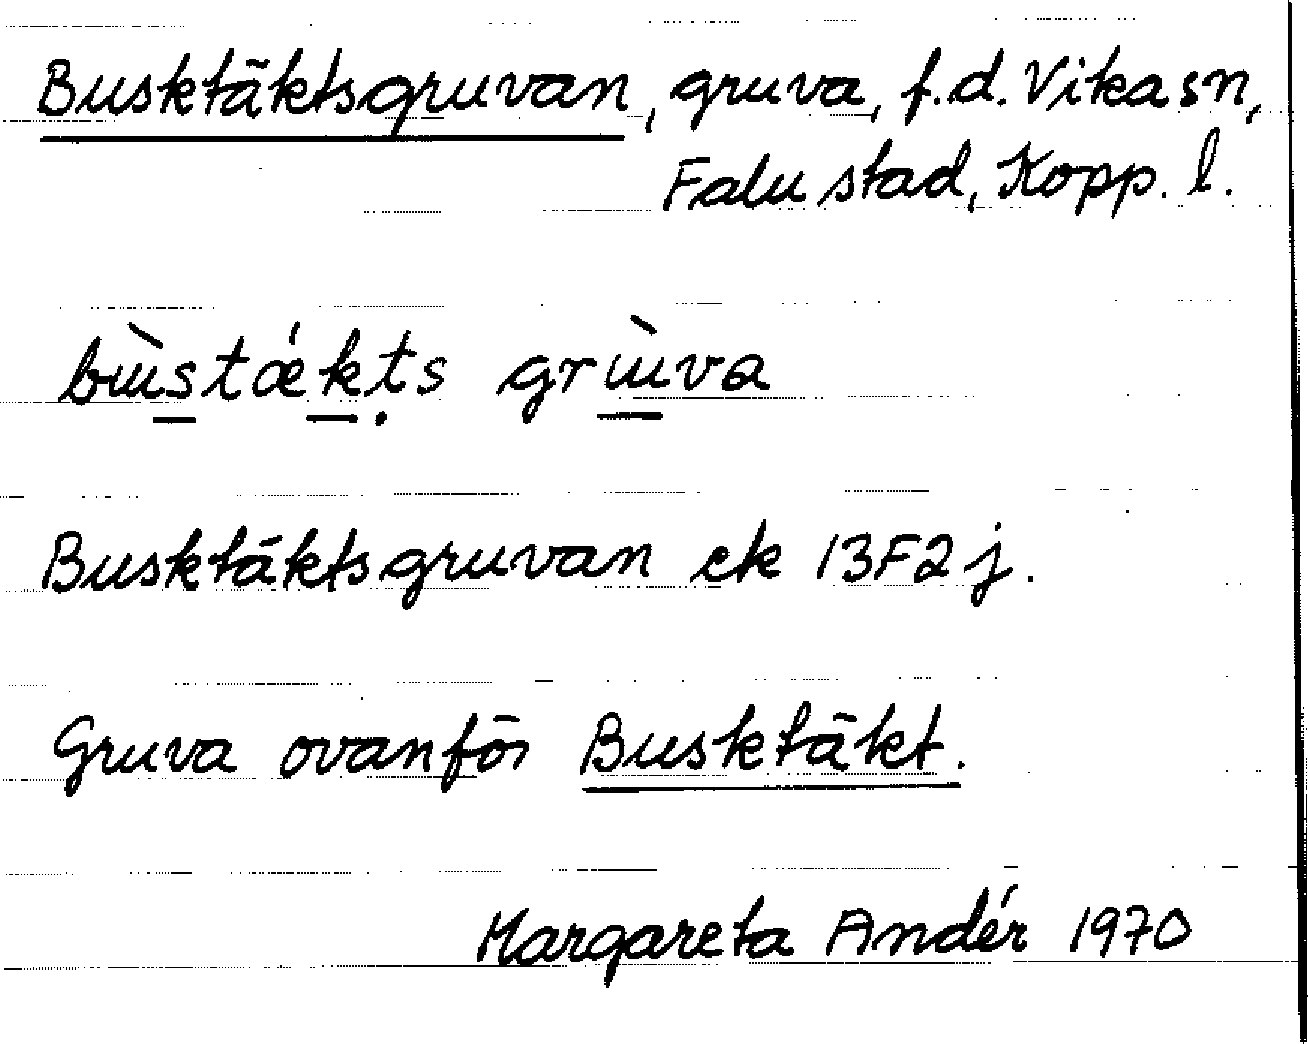 Busktäktsgruvan, gruva, f.d. Vika sn,
Falu stad, Kopp. l.
bɯ̀stǽkts grɯ̀va
Busktäktsgruvan ek 13F2j.
Gruva ovanför Busktäkt.
Margareta Andér 1970